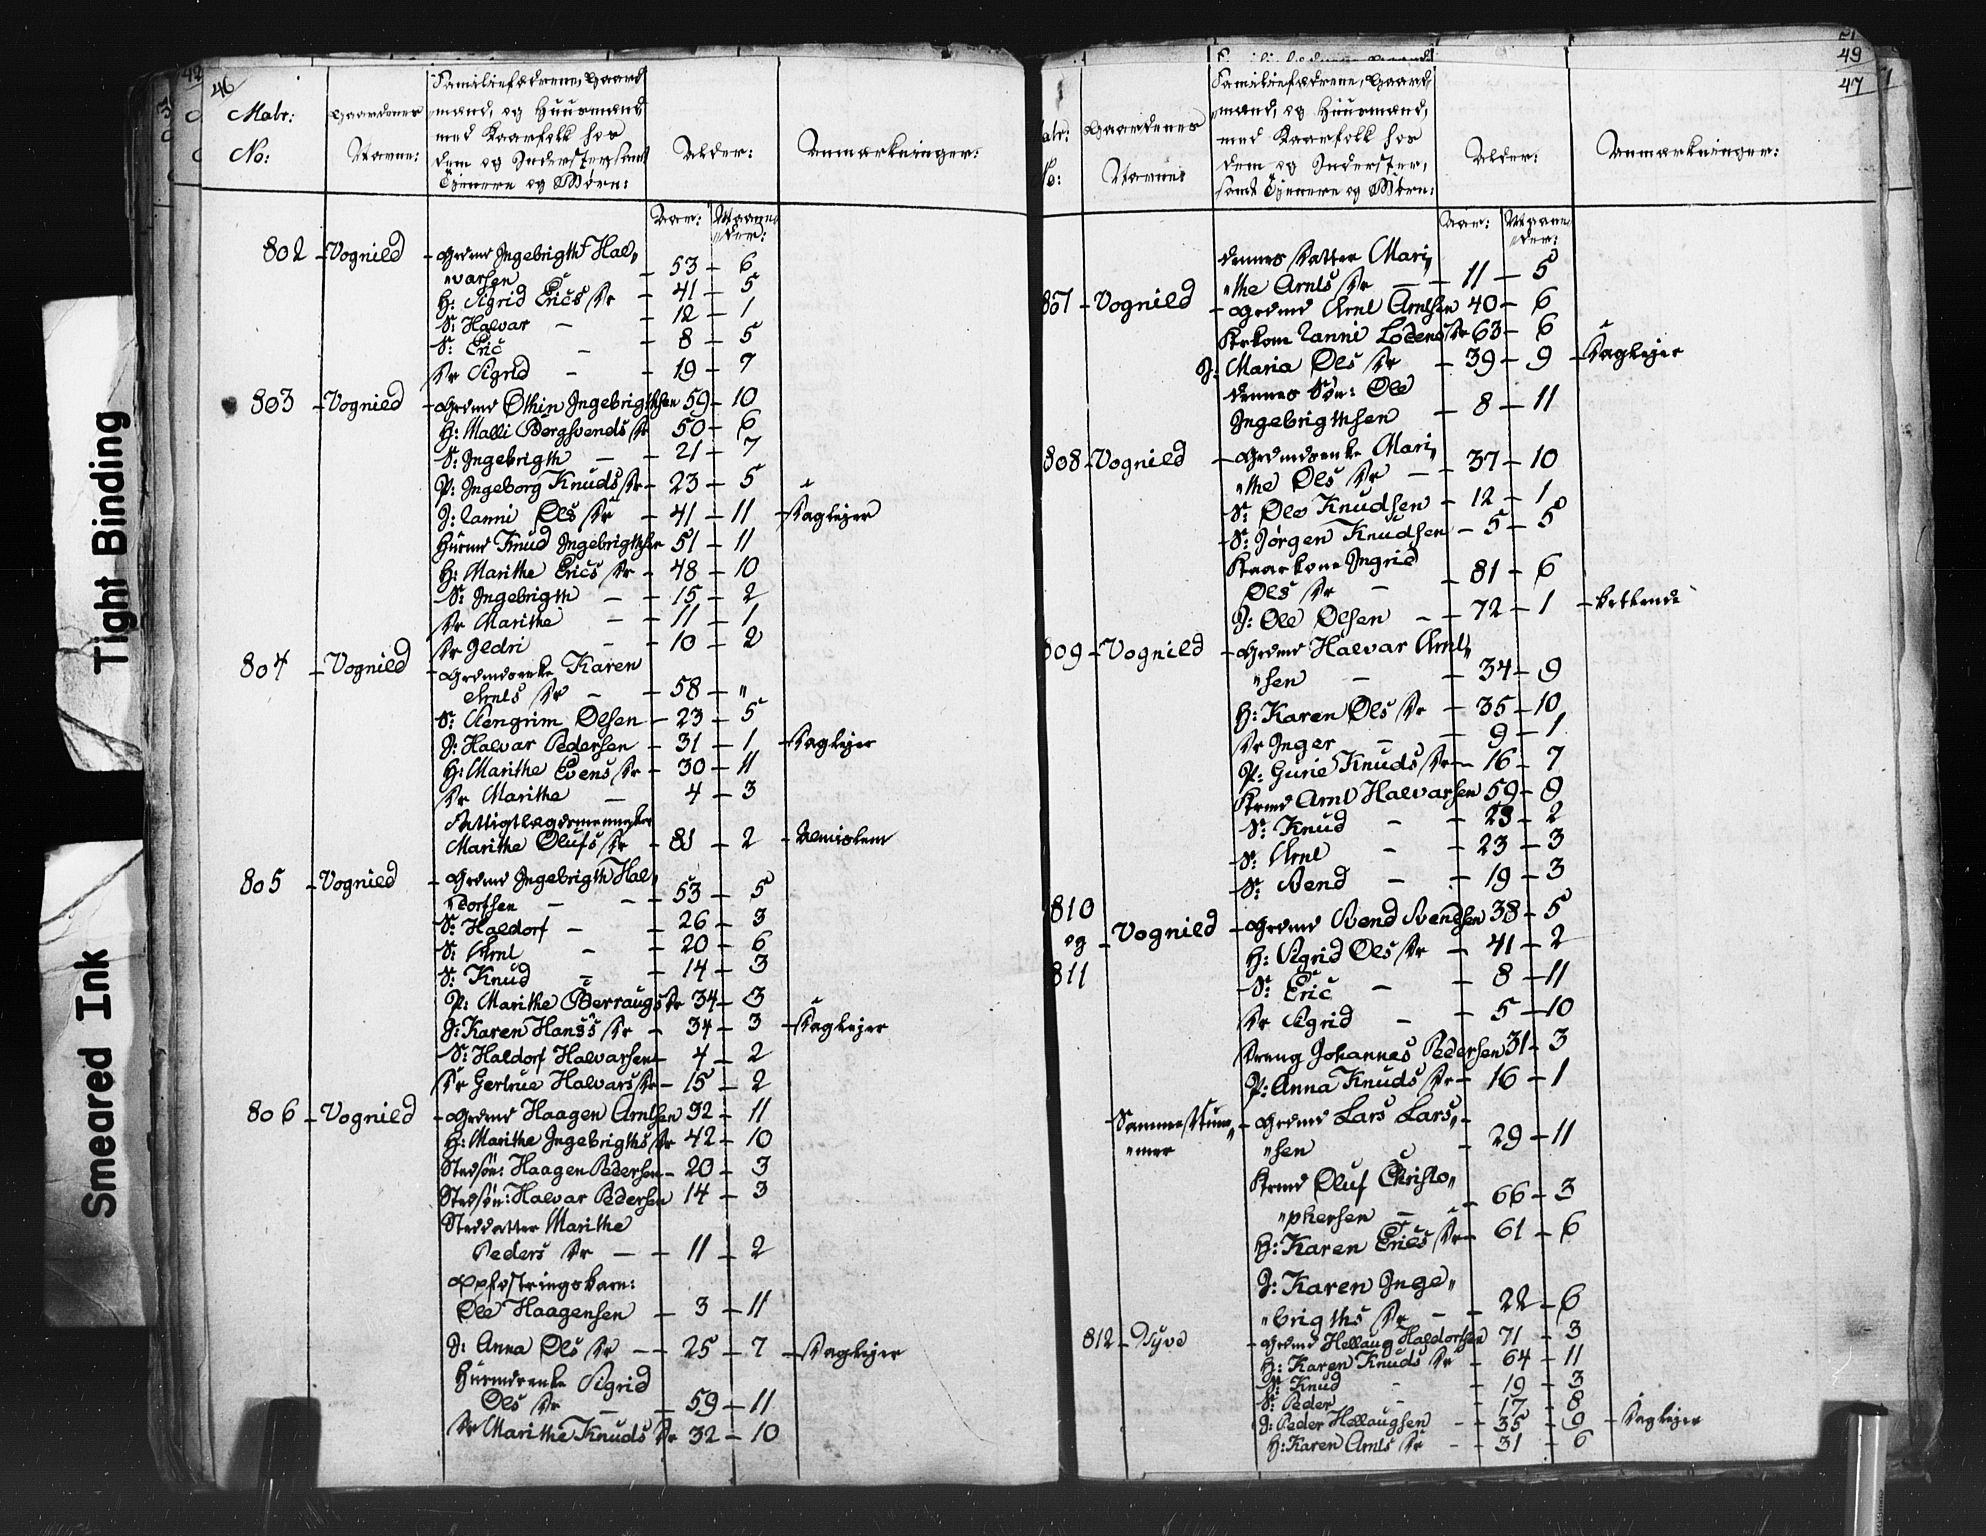 Tight Binding
Smeared Ink
46
Matr: No:
Gaardenes Navne:
Familiefædrene, Gaard
mænd, og Huusmænd
med Kaarfolk hos
dem og Inderster, samt
Tjenere og Børn:
Alder:
Anmærkninger:
Aar: Maane
der:
802 - Vognild - Grdmd Ingebrigth Hal„
„varsen - 53 - 6
H: Sigrid Erics Dr - 41 - 5
S: Halvar - 12 - 1
S: Eric - 8 - 5
Dr Sigrid - 19 - 7
803 - Vognild - Grdmd Othin Ingebrigthsen 59 - 10
H: Malli Bergsvends Dr 50 - 6
S: Ingebrigth - 21 - 7
P: Ingeborg Knuds Dr - 23 - 5
J: Ranni Ols Dr - 41 - 11 - Dagleier
Husmd Knud Ingebrigthsen 51 - 11
H: Marithe Erics Dr - 48 - 10
S: Ingebrigth - 15 - 2
Dr Marithe - 11 - 1
Dr Ildri - 10 - 2
804 - Vognild - Grdmdsenke Karen
Arnts Dr - 58 - „
S: Stengrim Olsen - 23 - 5
J: Halvar Pedersen - 31 - 1 - Dagleier
H: Marithe Evens Dr - 30 - 11
Dr Marithe - 4 - 3
Fattiglægdsmennesket
Marithe Olufs Dr - 81 - 2 - Almislem
805 - Vognild - Grdmd Ingebrigth Hal„
„dorfsen - 53 - 5
S: Haldorf - 26 - 3
S: Arnt - 20 - 6
S: Knud - 14 - 3
P: Marithe Berraugs Dr 34 - 3
J: Karen Hanss Dr - 34 - 3 - Dagleier
S: Haldorf Halvarsen - 4 - 2
Dr Gertrue Halvars Dr - 15 - 2
806 - Vognild - Grdmd Haagen Arntsen 32 - 11
H: Marithe Ingebrigths Dr 42 - 10
Stedsøn: Haagen Pedersen - 20 - 3
Stedsøn: Halvar Pedersen 14 - 3
Steddatter Marithe
Peders Dr - 11 - 2
Opfostringsbarn:
Ole Haagensen - 3 - 11
J: Anna Ols Dr - 25 - 7 - Dagleier
Husmdsenke Sigrid
Ols Dr - 59 - 11
Dr Marithe Knuds Dr 32 - 10
49
47
Gaardenes Navne:
Familiefædrene, Gaard
mænd, og Huusmænd,
med Kaarfolk hos
dem og Inderster,
samt Tjenere og Børn:
Alder:
Anmærkninger:
Aar: Maane
der:
dennes Datter Mari„
„the Arnts Dr - 11 - 5
807 - Vognild - Grdmd Arnt Arntsen 40 - 6
Krkone Ranni Lodens Dr 63 - 6
J: Maria Ols Dr - 39 - 9 - Dagleier
dennes Søn: Ole
Ingebrigthsen - 8 - 11
808 - Vognild - Grdmdsenke Mari„
„the Ols Dr - 37 - 10
S: Ole Knudsen - 12 - 1
S: Jørgen Knudsen - 5 - 5
Kaarkone Ingrid
Ols Dr - 81 - 6
J: Ole Olsen - 72 - 1 - betlende
809 - Vognild - Grdmd Halvar Arnt„
„sen - 34 - 9
H: Karen Ols Dr - 35 - 10
Dr Inger - 9 - 1
P: Gurie Knuds Dr - 16 - 7
Krmd Arnt Halvarsen 59 - 9
S: Knud - 28 - 2
S: Arnt - 23 - 3
S: Svend - 19 - 3
810
og - Vognild - Grdmd Svend Svendsen 38 - 5
H: Sigrid Ols Dr - 41 - 2
811
S: Eric - 8 - 11
Dr Sigrid - 5 - 10
Dreng Johannes Pedersen 31 - 3
P: Anna Knuds Dr - 16 - 1
Samme Num„
„mer - Grdmd Lars Lars„
„sen - 29 - 11
Krmd Oluf Christo„
„phersen - 66 - 3
H: Karen Erics Dr - 61 - 6
J: Karen Inge„
„brigths Dr - 22 - 6
812 - Tyvd - Grdmd Hellaug Haldorsen 71 - 3
H: Karen Knuds Dr - 64 - 11
S: Knud - 19 - 3
S: Peder - 17 - 8
J: Peder Hellaugsen - 35 - 9 - Dagleier
H: Karen Arnts Dr - 31 - 6